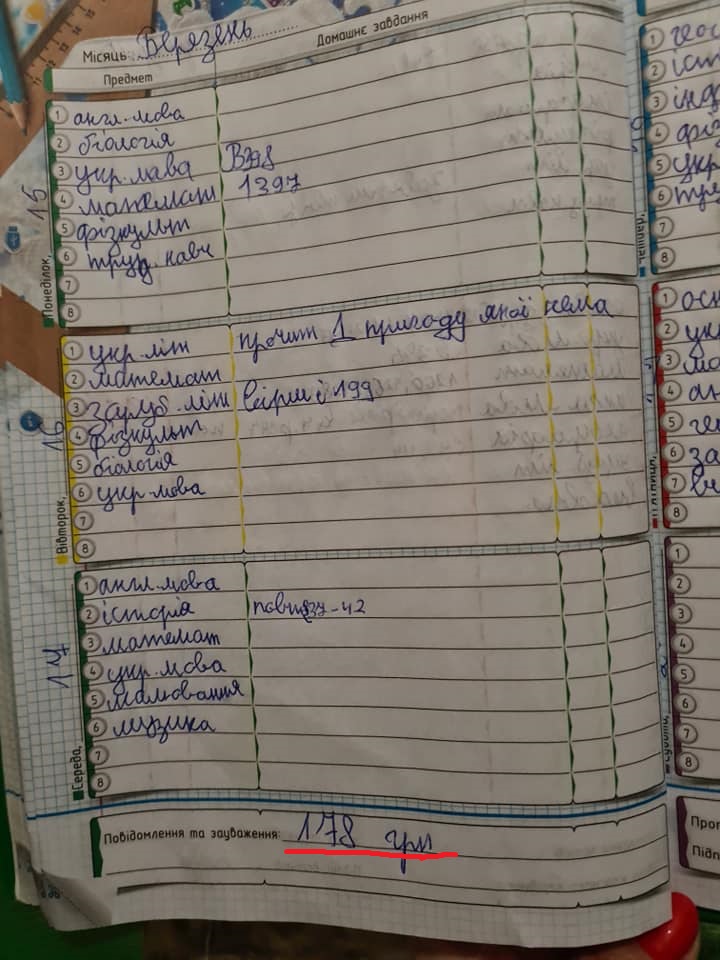 Місяць: Березень
Предмет
Домашнє завдання
Понеділок, 15
1 англ. мова
2 біологія
3 укр. мова В398
4 математ 1397
5 фізкульт
6 труд. навч
7
8
Вівторок, 16
1 укр. літ прочит 1 пригоду якої нема
2 математ
3 заруб. літ вірш с 199
4 фізкульт
5 біологія
6 укр. мова
7
8
Середа, 17
1 англ. мова
2 історія
3 математ
4 укр. мова
5 малювання
6 музика
7
8
Повідомлення та зауваження: 178 грн
1
2 іст
3
4 фіз
5 укр
6
7
8
1
2
3
4
5
6
7
8
1
2
3
4
5
6
7
8